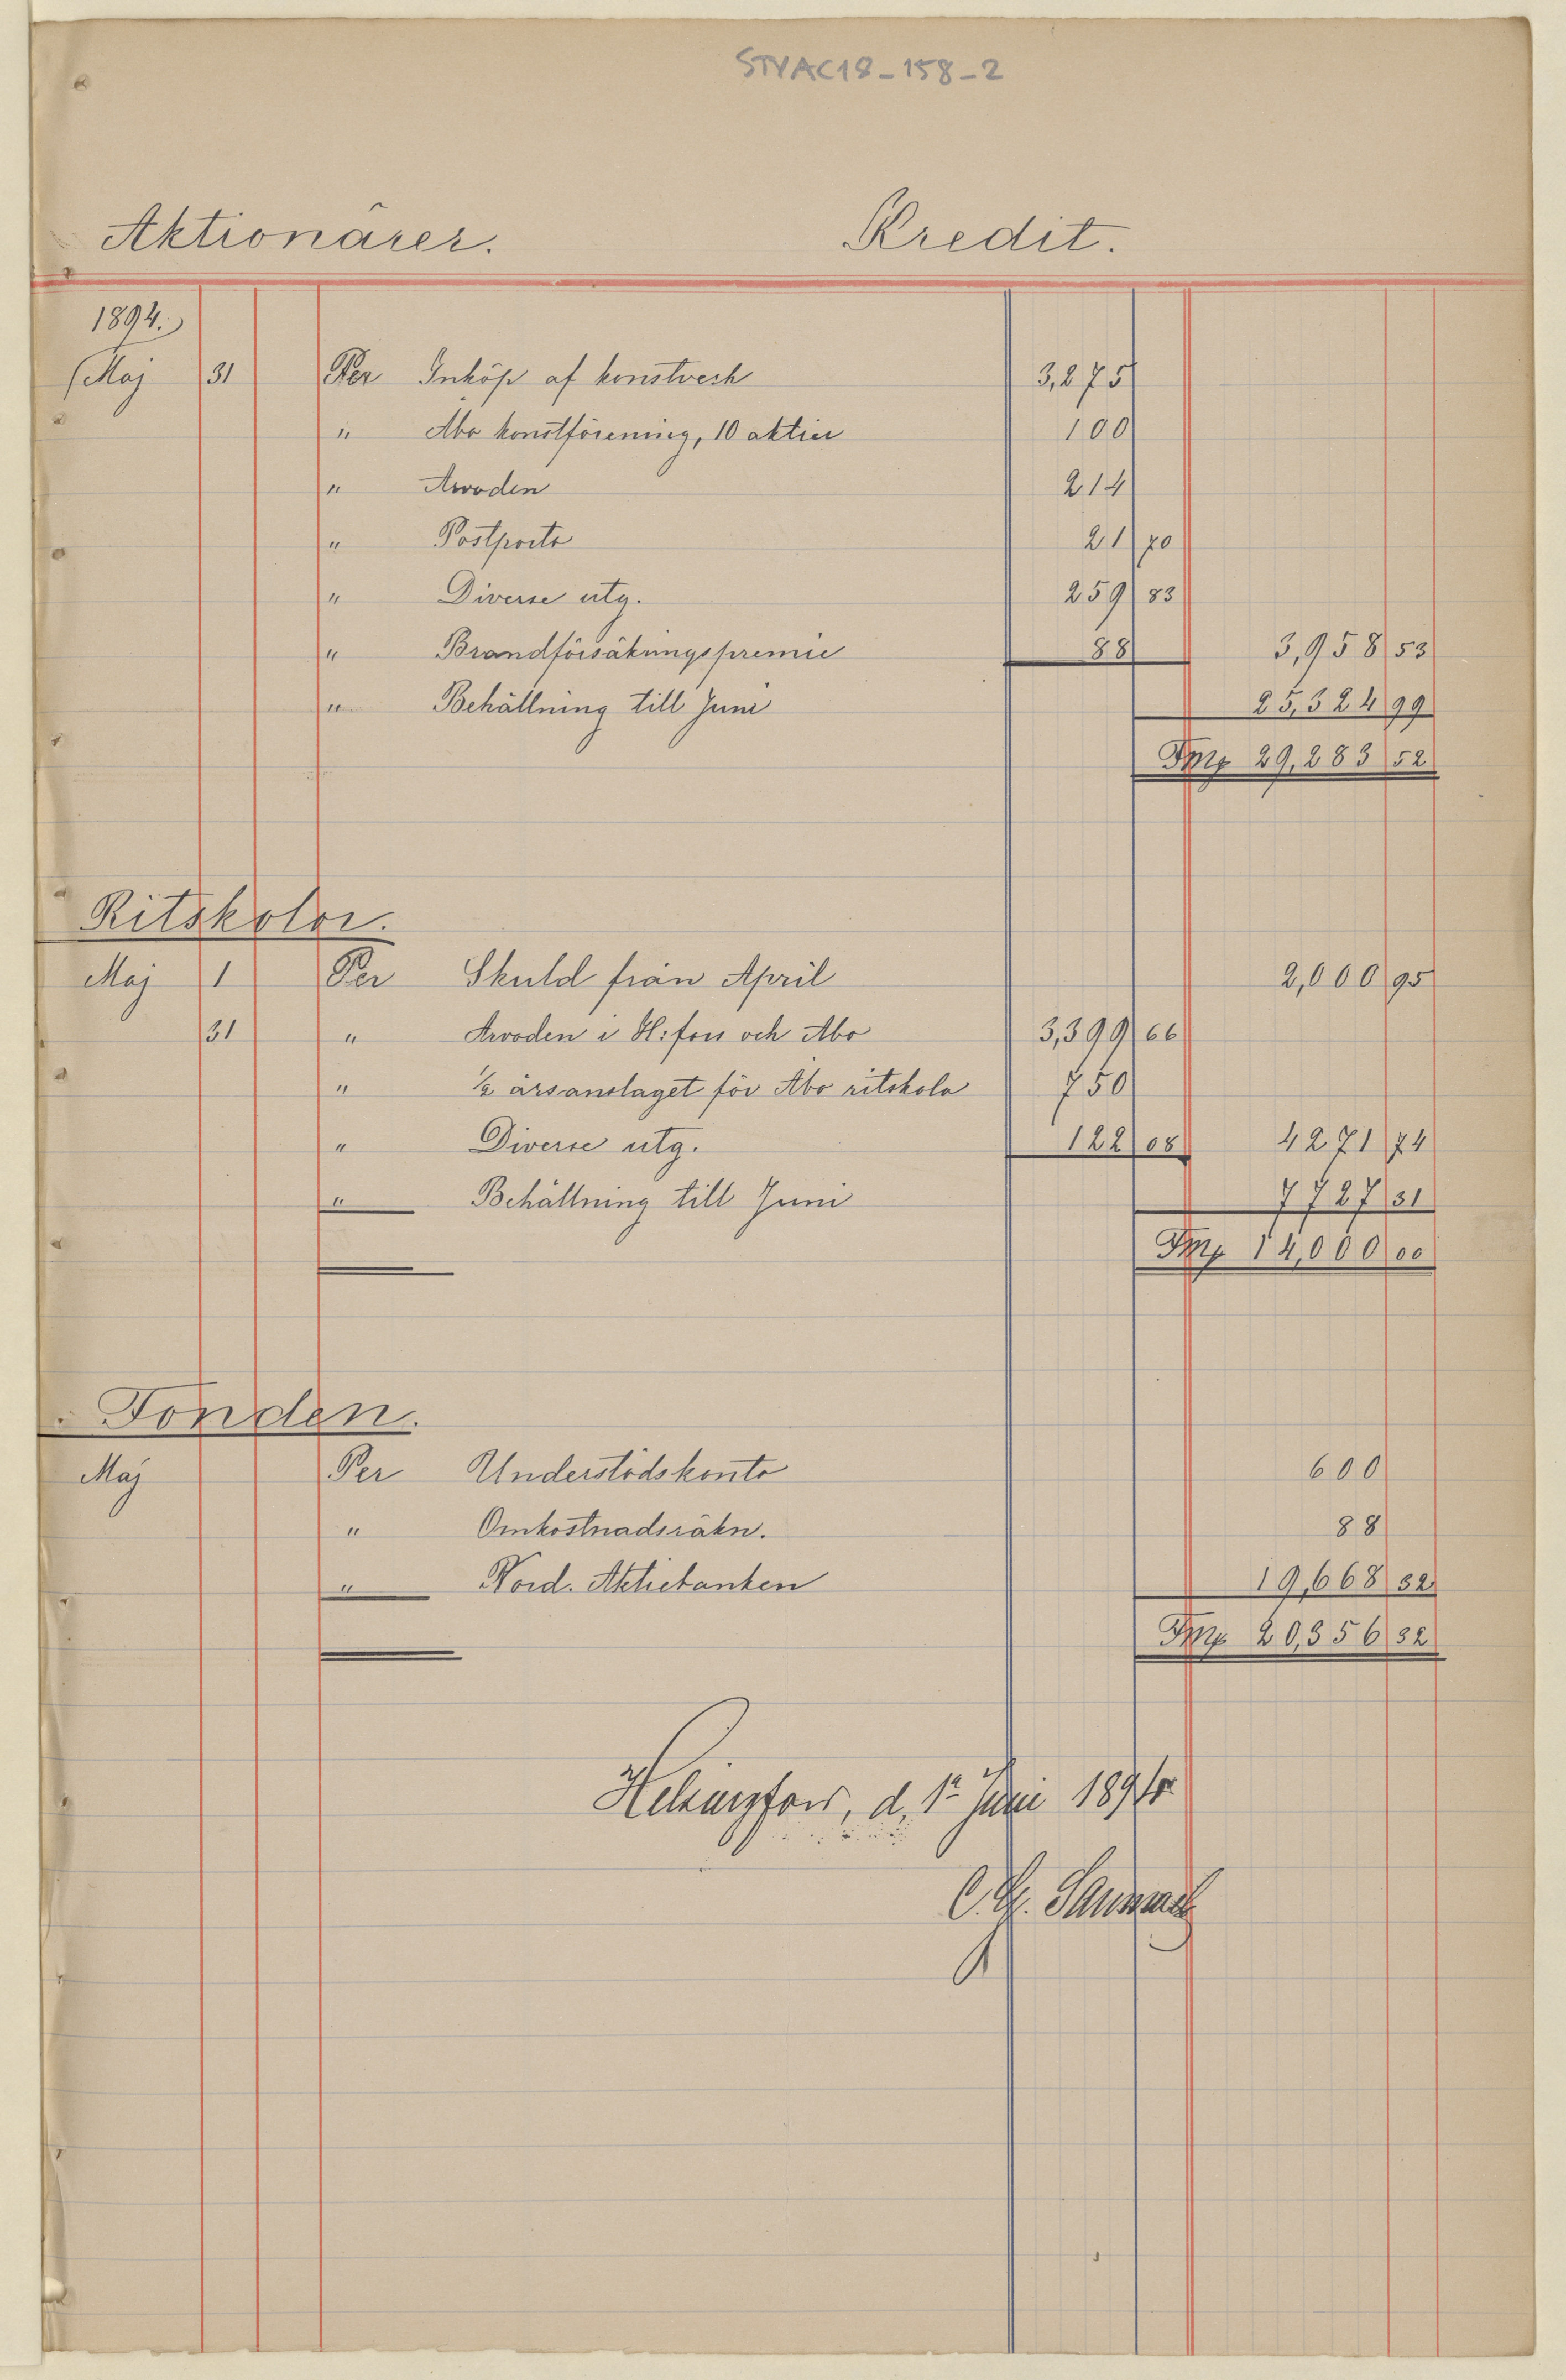 STYAC18-158-2
Aktionärer. Kredit.
1894.
Maj 31 Per Inköp af konstverk 3,275
" Åbo konstförening, 10 aktier 100
" Arvoden 214
" Postporto 21 70
" Diverse utg. 259 83
" Brandförsäkringspremie 88 3,958 53
" Behållning till Juni 25,324 99
Fmk 29,283 52
Ritskolor.
Maj 1 Per Skuld från April 2,000 95
31 " Arvoden i H:fors och Åbo 3,399 66
" ½ årsanslaget för Åbo ritskola 750
" Diverse utg. 122 08 4271 74
" Behållning till Juni 7727 31
Fmk 14,000 00
Fonden.
Maj Per Understödskonto 600
" Omkostnadsräkn. 88
" Nord. Aktiebanken 19,668 32
Fmk 20,356 32
Helsingfors, d. 1 Juni 1894